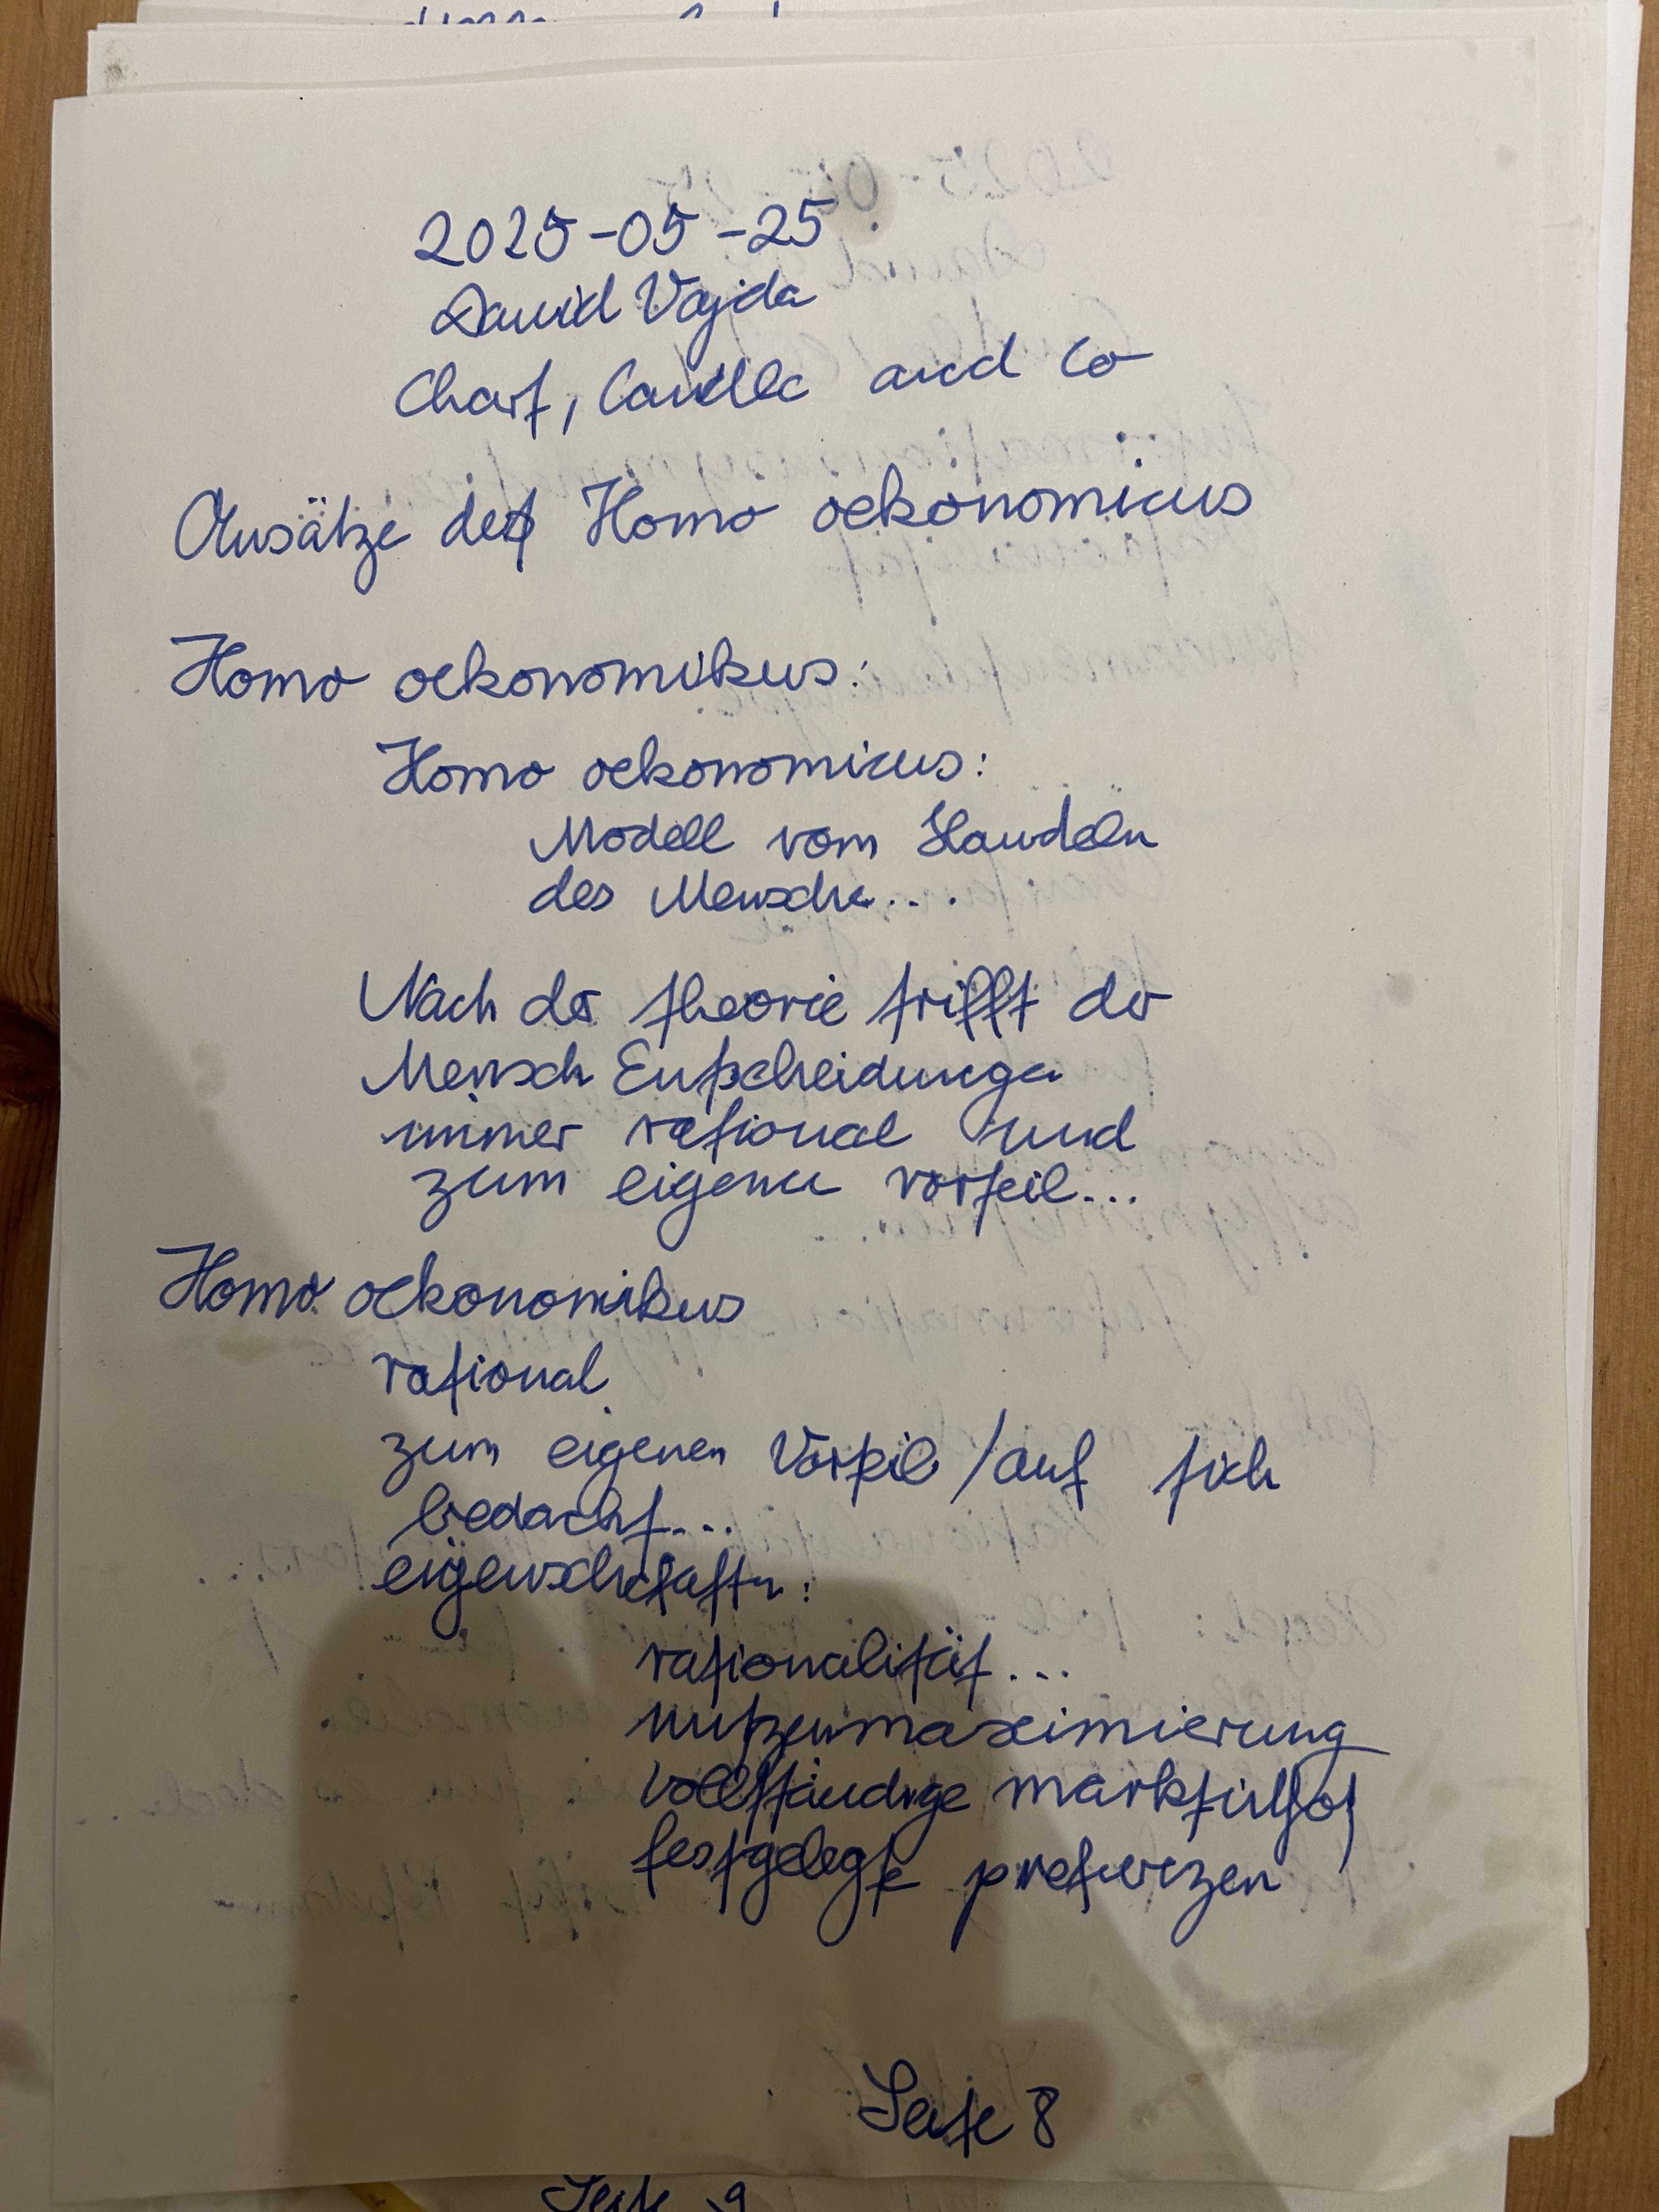 2025-05-25
David Vajda
Chart, Candle and Co
Ansätze des Homo oekonomicus
Homo oekonomikus:
Homo oekonomicus:
Modell vom Handeln
des Mensche...
Nach der theorie trifft der
Mensch Entscheidungen
immer rational und
zum eigenen vorteil...
Homo oekonomikus
rational
zum eigenen Vorteil / auf sich
bedacht...
eigenschaften:
rationalität...
nutzenmaximierung
vollständige marktinfos
festgelegte preferenzen
Seite 8
Seite 9